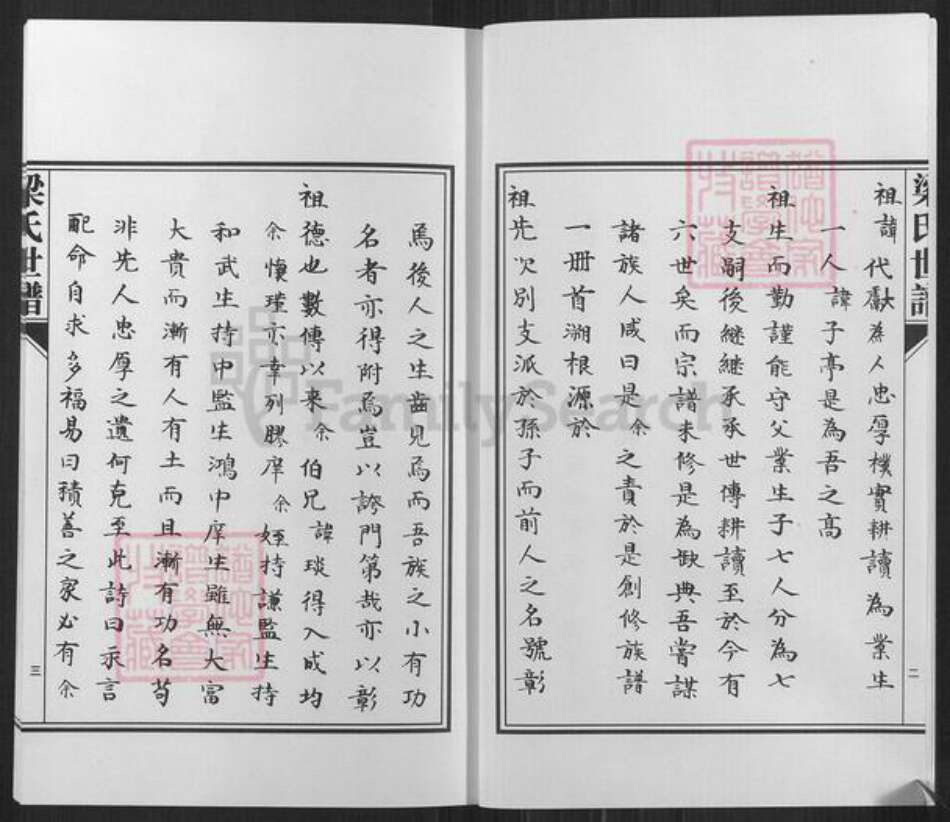 梁氏世譜
祖諱代獻為人忠厚樸實耕讀為業生
一人諱子亭是為吾之高
祖生而勤謹能守父業生子七人分為七
支嗣後繼繼承承世傳耕讀至於今有
六世矣而宗譜未修是為缺典吾嘗謀
諸族人咸曰是余之責於是創修族譜
一冊首溯根源於
祖先次別支派於孫子而前人之名號彰
二
焉後人之生齒見焉而吾族之小有功
名者亦得附焉豈以誇門第哉亦以彰
祖德也數傳以來余伯兄諱琰得入成均
余懷瑾亦幸列膠庠余姪持謙監生持
和武生持中監生鴻中庠生雖無大富
大貴而漸有人有土而且漸有功名苟
非先人忠厚之遺何克至此詩曰永言
配命自求多福易曰積善之家必有余
梁氏世譜
三
FamilySearch